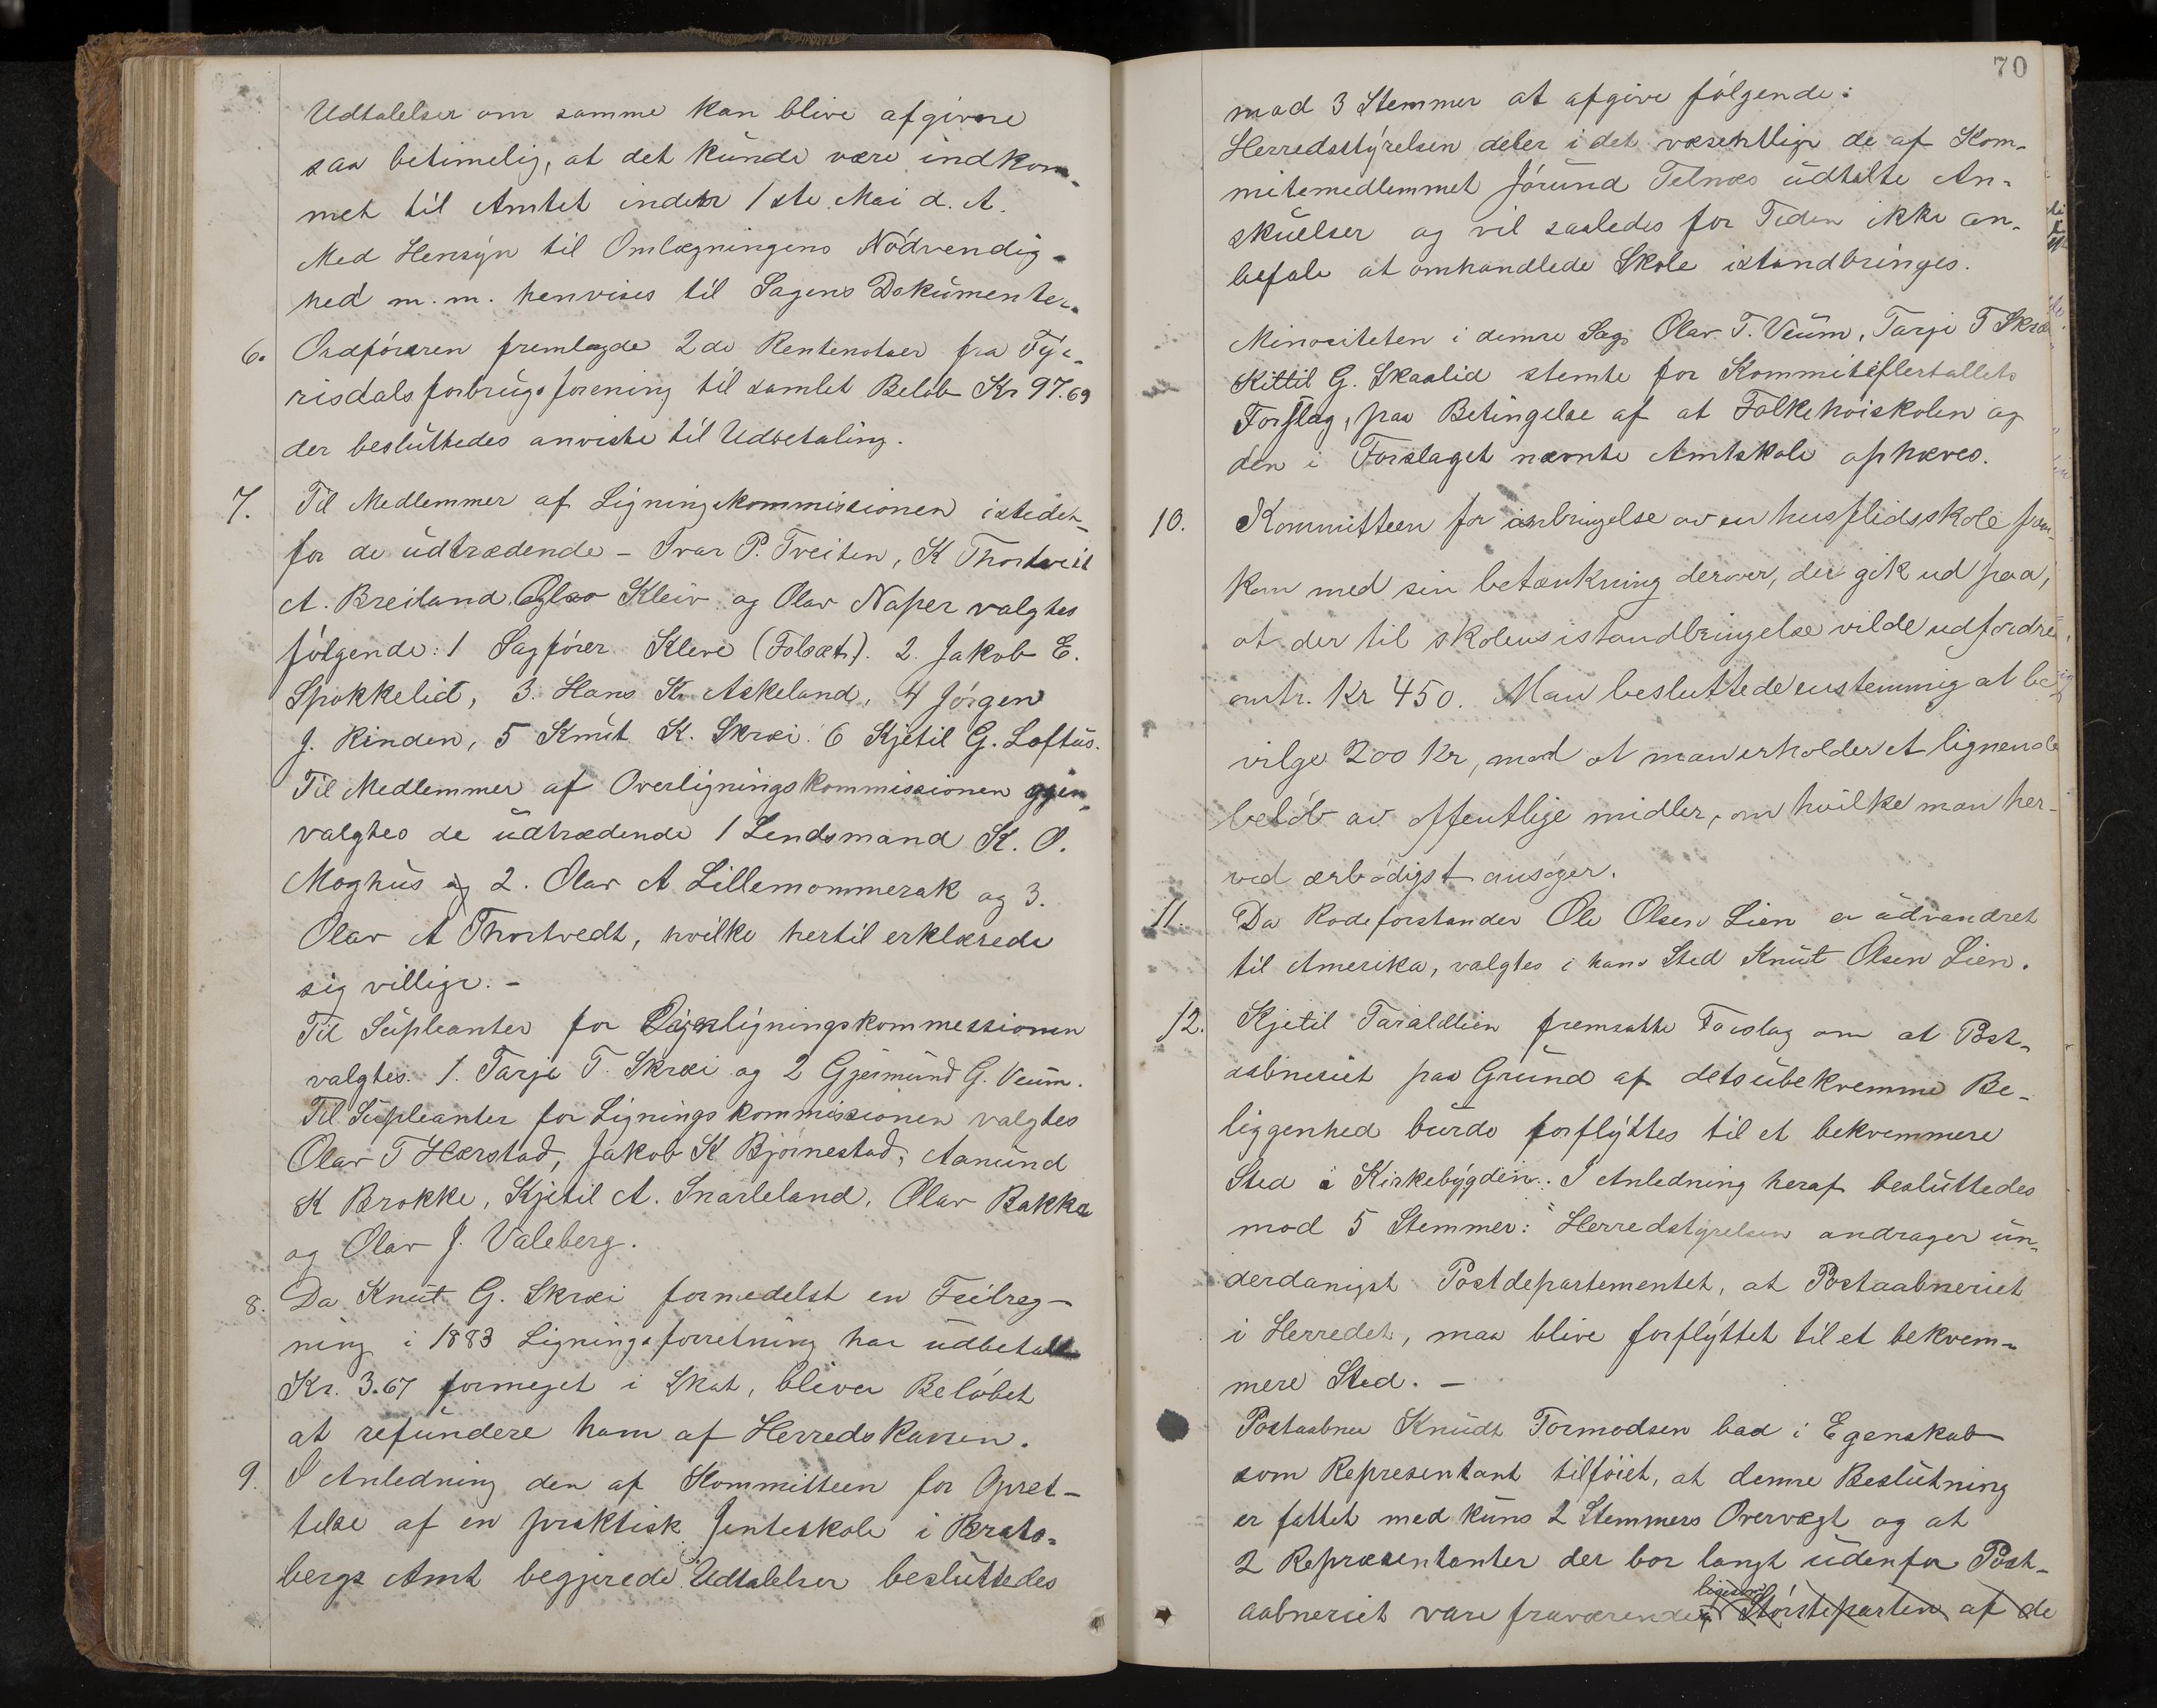 Udtalelser om samme kan blive afgivne
saa betimelig, at det kunde være indkom-
met til Amtet inden 1ste Mai d. A.
Med Hensyn til Omlægningens Nödvendig-
hed m. m. henvises til Sagens Dokumenter.
6. Ordföreren fremlagde 2de Rentenotaer fra Fyr-
risdals forbrugsforening til samlet Belöb Kr 97.69
der besluttedes anviste til Udbetaling.
7. Til Medlemmer af Ligningskommissionen isteden-
for de udtrædende - Ivar P. Treiten, K Thortveit
A. Breiland, Kleiv og Olav Naper valgtes
fölgende: 1 Sagförer Kleve (Folsæt). 2. Jakob E.
Spokkelid, 3. Hans K. Askeland, 4 Jörgen
J. Rinden, 5 Knut K. Skræi 6 Kjetil G. Loftus.
Til Medlemmer af Overligningskommissionen gjen-
valgtes de udtrædende 1 Lendsmand K. O.
Moghus og 2. Olav A Lillemommerak og 3.
Olav A Thortvedt, hvilke hertil erklærede
sig villige. -
Til Supleanter for ligningskommessionen
valgtes. 1. Tarje T. Skræi og 2 Gjermund G. Veum.
Til Supleanter for Ligningskommissionen valgtes
Olav T Hærstad, Jakob K Björnestad, Aanund
K Brokke, Kjetil A. Snarleland, Olav Bakka
og Olav J. Valeberg.
8. Da Knut G. Skræi formedelst en Feilreg-
ning i 1883 Ligningsforretning har udbetalt
Kr. 3.67 formeget i Skat, bliver Belöbet
at refundere ham af Herredskassen.
9. I Anledning den af Kommitteen for Opret-
telse af en praktisk Jenteskole i Brats-
bergs Amt begjærede Udtalelser besluttedes
70
mod 3 Stemmer at afgive fölgende:
Herredsstyrelsen deler i det væsentlige de af Kom-
mitemedlemmet Jörund Telnæs udtalte An-
skuelser og vil saaledes for Tiden ikke an-
befale at omhandlede Skole istandbringes.
Minoriteten i denne Sag Olav T. Veum, Tarje T Skræ
Kittil G. Skaalid stemte for Kommiteflertallets
Forslag, paa Betingelse af at Folkehöiskolen og
den i Forslaget nævnte Amtskole ophæves.
10. Kommitteen for anbringelse av en husflidsskole frem-
kom med sin betænkning derover, der gik ud paa,
at der til skolens istandbringelse vilde udfordres
omtr. Kr 450. Man besluttede enstemmig at be-
vilge 200 Kr, mod at man erholder et lignende
belöb av offentlige midler, om hvilke man her-
ved ærbödigst ansöger.
11. Da Rodeforstander Ole Olsen Lien er udvandret
til Amerika, valgtes i hans Sted Knut Olsen Lien.
12. Kjetil Taraldlien fremsatte Forslag om at Post-
aabneriet paa Grund af dets ubekvemme Be-
liggenhed burde forflyttes til et bekvemmere
Sted i Kirkebygden. I Anledning heraf besluttedes
mod 5 Stemmer: "Herredstyrelsen andrager un-
derdanigst Postdepartementet, at Postaabneriet
i Herredet, maa blive forflyttet til et bekvem-
mere Sted. -
Postaabner Knudt Tormodsen bad i Egenskab
som Representant tilföiet, at denne Beslutning
er fattet med kuns 2 Stemmers Overvægt og at
2 Repræsentanter der bor langt udenfor Post-
ligesom
aabneriet vare fraværende Störsteparten af de